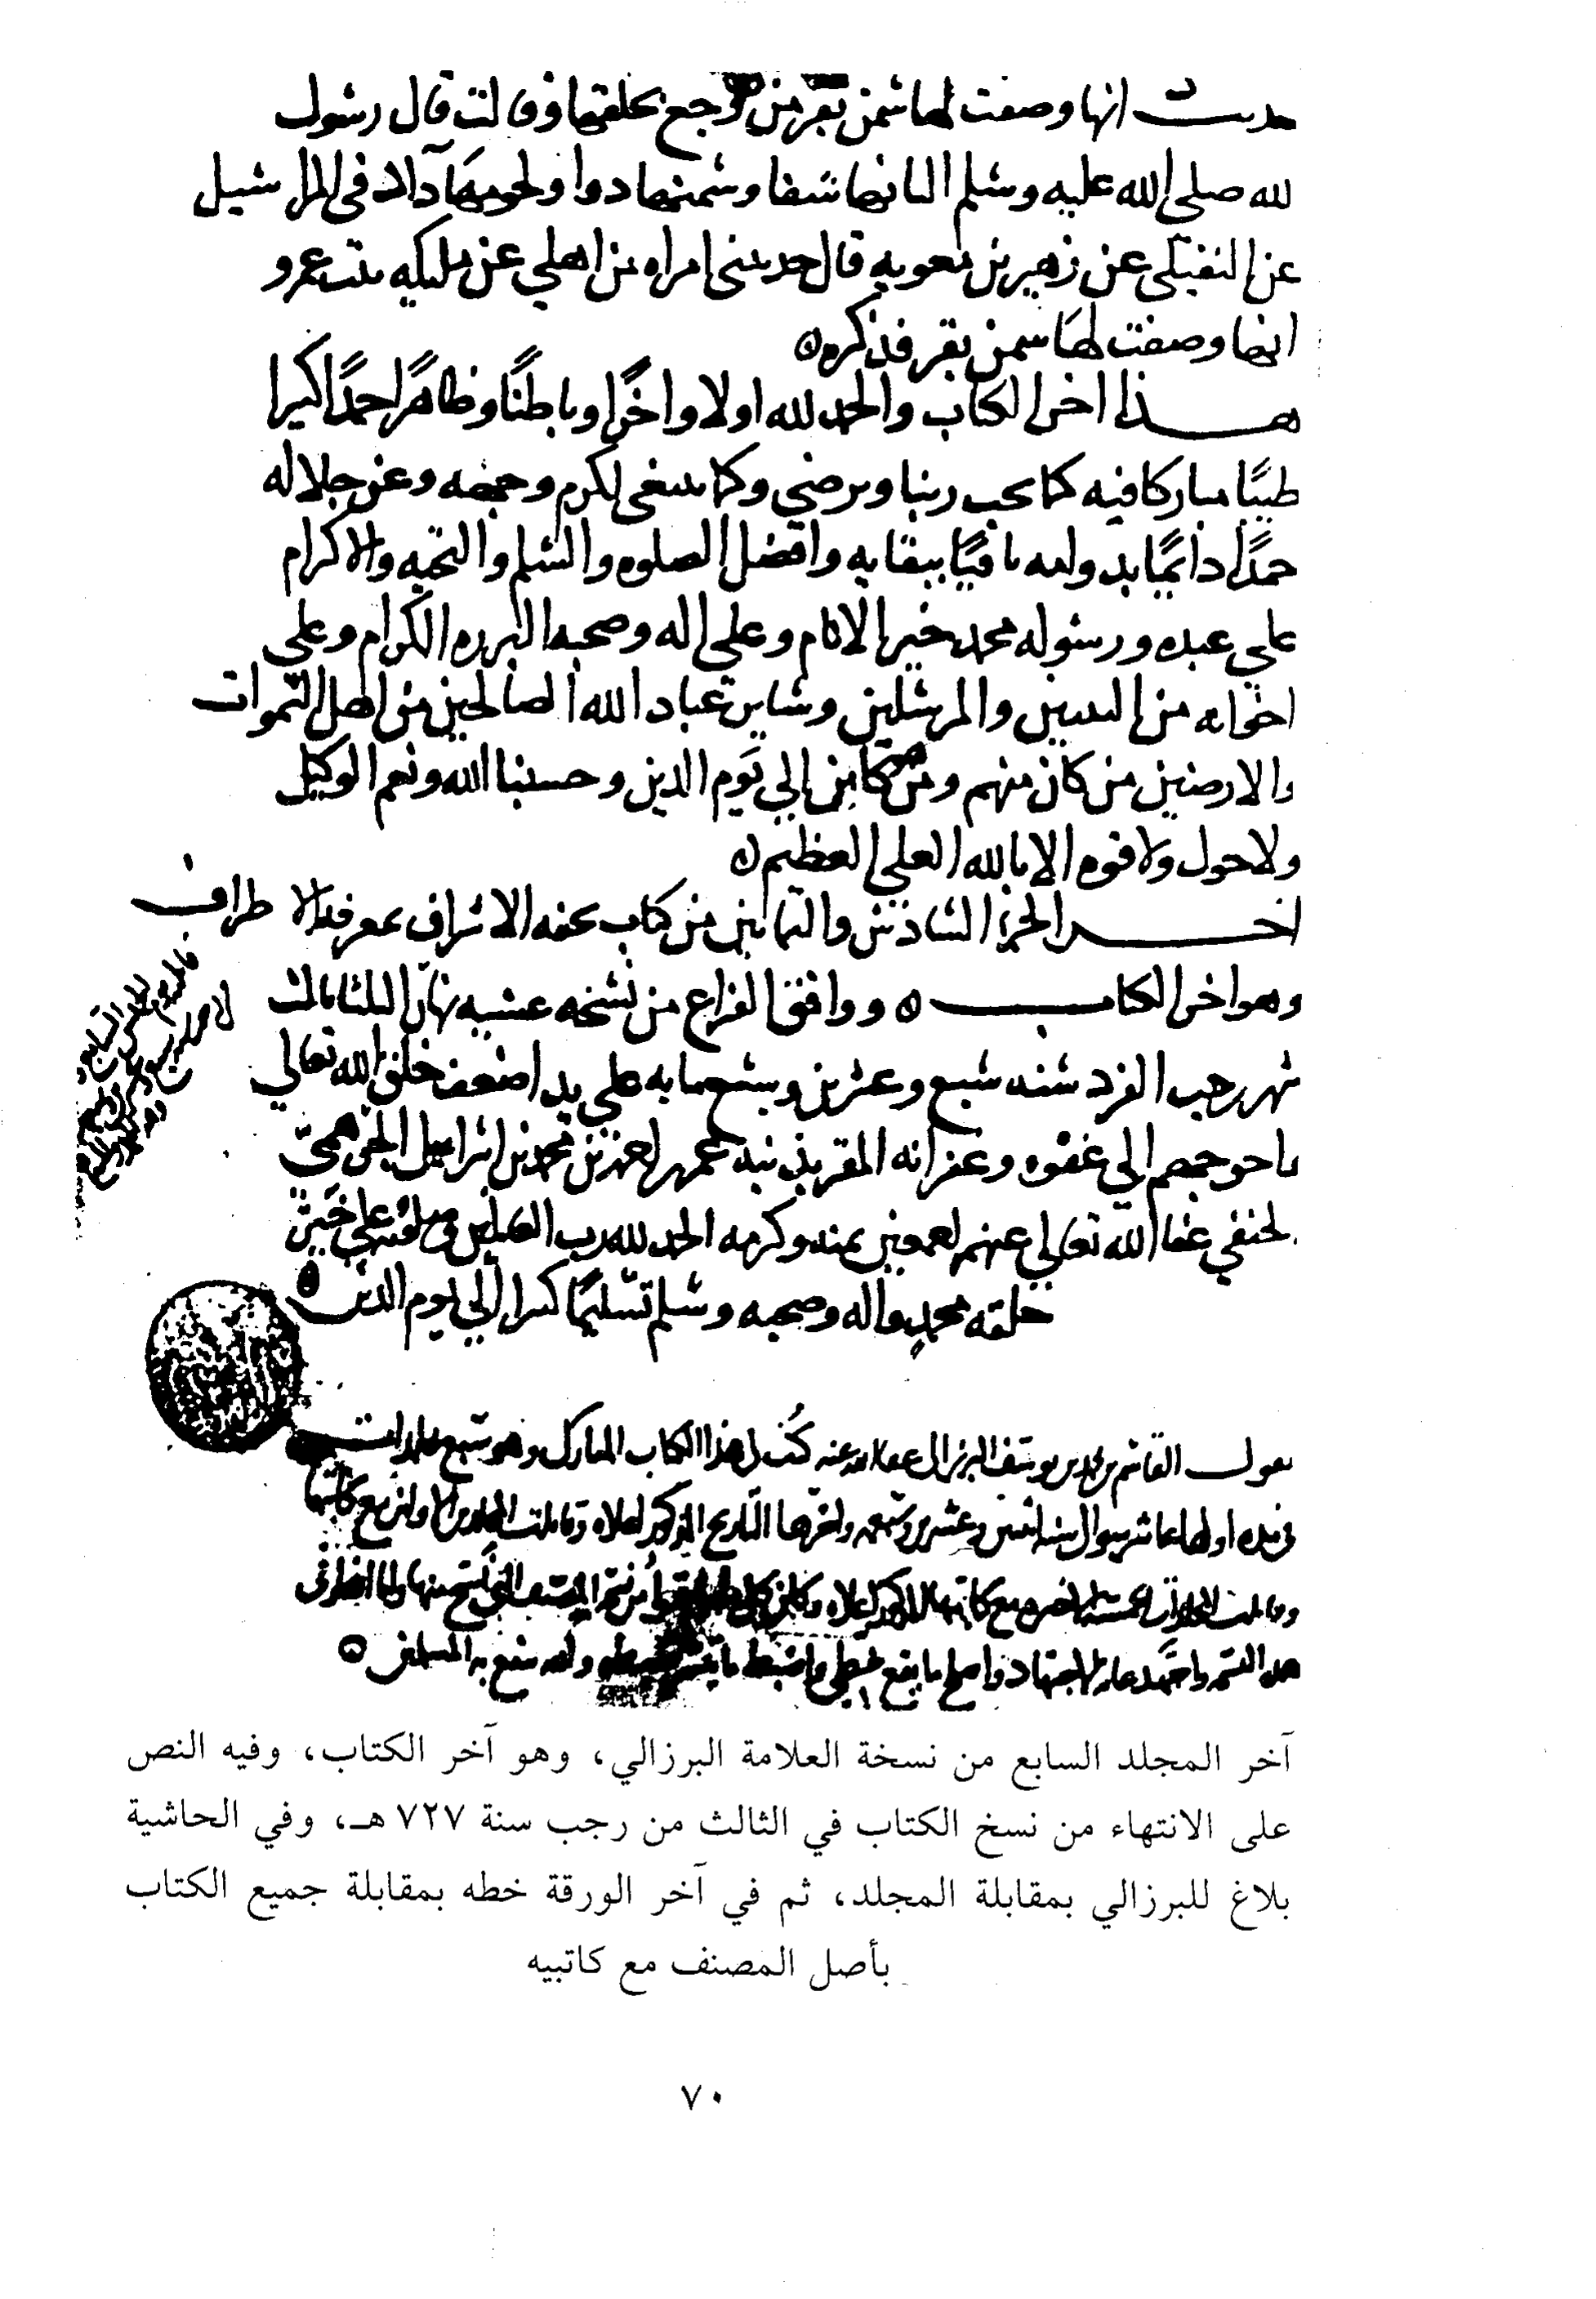 حديث انها وصفت لها سمن بقر من وجع بحلقها وقالت قال رسول
لله صلى الله عليه وسلم البانها شفا وسمنها دوا ولحومها داء د في المراسيل
عن النفيلي عن زهير بن معويه قال حدثتني امراه من اهلي عن مليكه بنت عمرو
انها وصفت لها سمن بقر فذكره
هذا اخر الكتاب والحمد لله اولا واخرًا وباطنًا وظاهرًا حمدًا كثيرا
طيبًا مباركا فيه كما يحب ربنا ويرضى وكما ينبغي لكرم وجهه وعز جلاله
حمدًا دائمًا بدوامه باقيًا ببقايه وافضل الصلوه والسلم والتحيه والاكرام
على عبده ورسوله محمد خير الانام وعلى اله وصحبه البرره الكرام وعلى
اخوانه من النبيين والمرسلين وساير عباد الله الصالحين من اهل السموات
والارضين من كان منهم ومن هو كاين الى يَوم الدين وحسبنا الله ونعم الوكيل
ولا حول ولا قوه الا بالله العلي العظيم
اخر الجزء السادس والثمانين من كتاب تحفه الاشراف بمعرفه الاطراف
وهو اخر الكتاب ووافق الفراغ من نسخه عشيه نهار الثلثا ثالث
شهر رجب الفرد سنه سبع وعشرين وسبعمايه على يد اضعف خلق الله تعالى
واحوجهم الى عفوه وغفرانه المقر بذنبه عمر بن محمد بن اسرائيل
لحنفي عفا الله تعالى عنهم اجمعين بمنه وكرمه الحمد لله رب العالمين وصلوته على خير
خلقه محمد واله وصحبه وسلم تسليمًا كثيرا الى يوم الدين
يقول القاسم بن محمد بن يوسف البرزالي عفا الله عنه كتب لي هذا الكتاب المبارك وهو سبع مجلدات
في مده اولها عاشر شوال سنه اثنتين وعشرين وسبعمايه واخرها التاريخ المذكور اعلاه وقابلت المجلدين الاولين مع كاتبهما
وقابلت المجلدات الخمسه الاخره مع كاتبها المذكور اعلاه وكان نسخه المصنف التي نسخ منها
هذه النسخه واجتهد غايه الاجتهاد واصلح ما يقع والله ينفع به المسلمين
آخر المجلد السابع من نسخة العلامة البرزالي، وهو آخر الكتاب، وفيه النص
على الانتهاء من نسخ الكتاب في الثالث من رجب سنة ٧٢٧ هـ، وفي الحاشية
بلاغ للبرزالي بمقابلة المجلد، ثم في آخر الورقة خطه بمقابلة جميع الكتاب
بأصل المصنف مع كاتبيه
٧٠